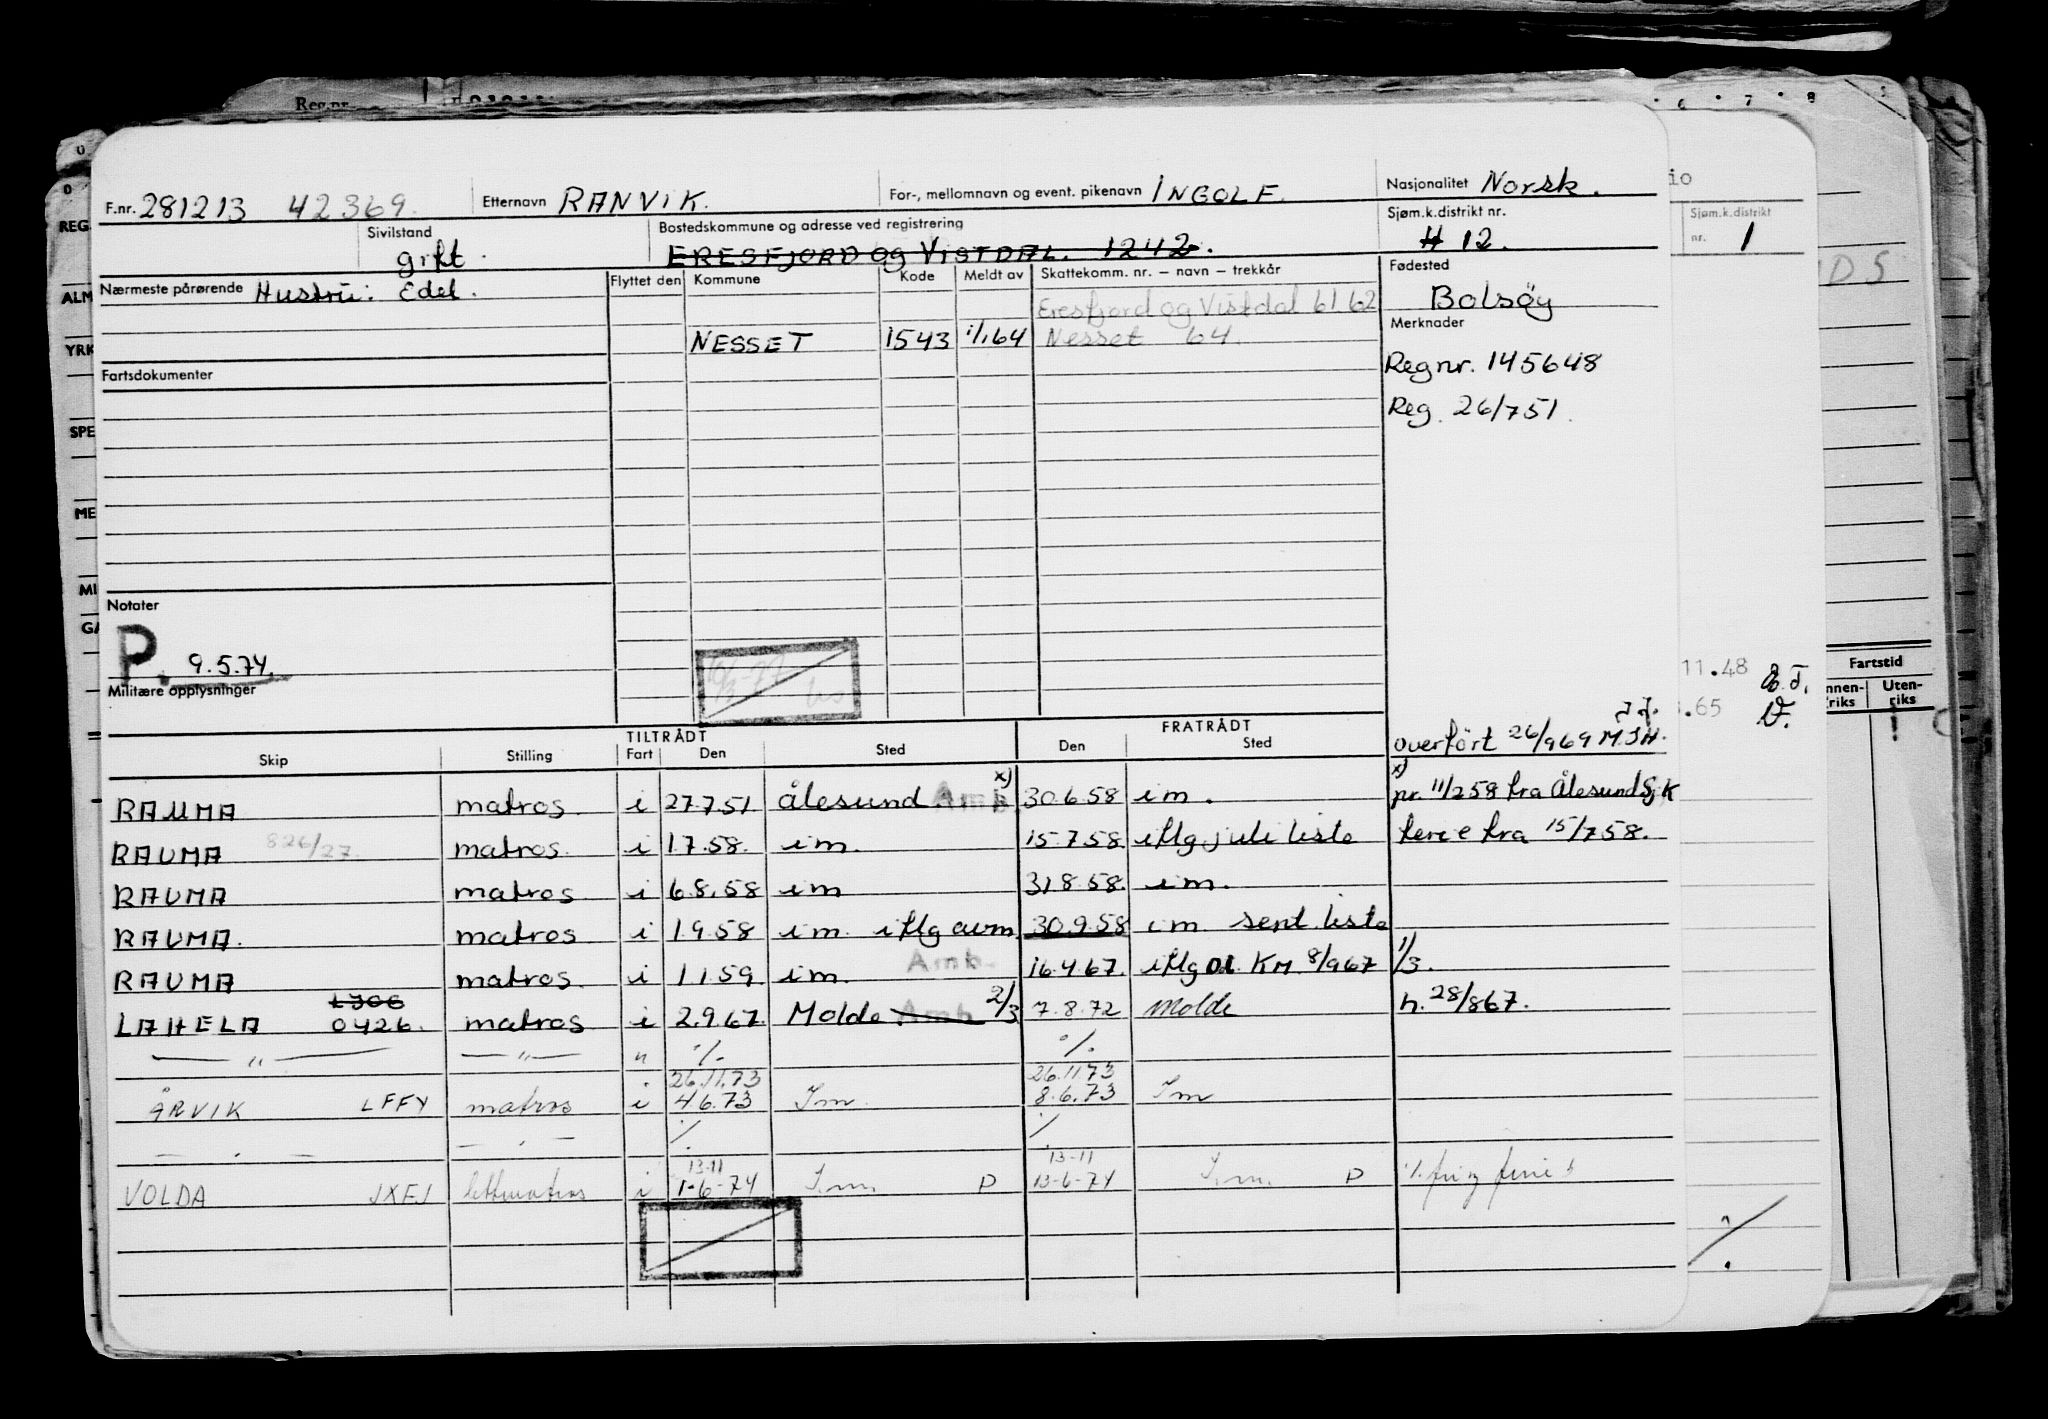 Reg.nr.
F.nr. 281213 42369. Etternavn RANVIK. For-, mellomnavn og event. pikenavn INGOLF. Nasjonalitet Norsk.
Sivilstand gift. Bostedskommune og adresse ved registrering ERESFJORD og VISTDAL. 1242. Sjøm.k.distrikt nr. 12.
Nærmeste pårørende Hustru: Edel. Flyttet den Kommune Kode Meldt av Skattekomm. nr. – navn – trekkår Fødested
Eresfjord og Vistdal 61 62 Bolsøy
NESSET 1543 1/1.64 Nesset 64. Merknader
Fartsdokumenter Regnr. 145648
Reg. 26/751.
Notater
P. 9.5.74.
Militære opplysninger
TILTRÅDT FRATRÅDT
Skip Stilling Fart Den Sted Den Sted overført 26/969 M.J.H.
RAUMA matros i 27.7.51 Ålesund Amb. x) 30.6.58 im. x) pr. 11/258 fra Ålesund SjK
RAUMA 826/27. matros. i 1.7.58. im. 15.7.58 iflg. juli liste ferie fra 15/758.
RAUMA matros i 6.8.58 im 31.8.58. im.
RAUMA. matros i 1.9.58 im. iflg avm. 30.9.58 im. sent. liste
RAUMA matros. i 1.1.59. im. Amb. 16.4.67. iflg OL KM 8/967 1/3.
LAHELA LJGG 0426. matros i 2.9.67. Molde Amb 2/3 7.8.72 Molde h. 28/867.
— " — — " — " ./. ./.
26.11.73 26.11.73
ÅRVIK LFFY matros i 4.6.73 Im. 8.6.73 Im
— . — — . — ./. ./.
13-11 13-11
VOLDA JXEJ lettmatros i 1-6-74 I.m. P 13-6-74 I.m. P
REG.
ALM
YRK
SPE
ME
MI
GA
io
Sjøm.k.distrikt
nr. 1
DS
11.48
.65
Fartstid
nnen-riks Uten-riks